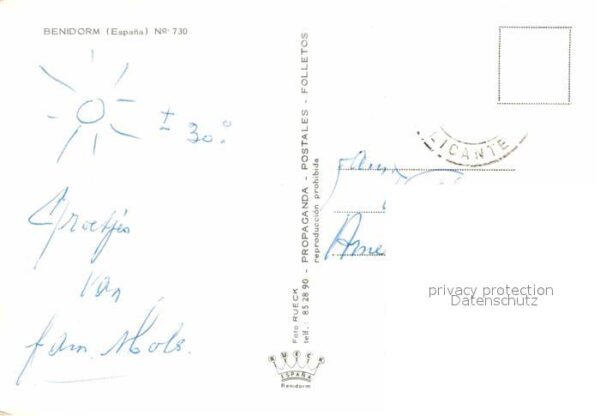 BENIDORM (España) Nº 730
± 30°
Groetjes
van
fam. Mols.
Foto RUECK - PROPAGANDA - POSTALES - FOLLETOS
telf. 85 28 90 reproducción prohibida
RUECK
ESPAÑA
Benidorm
LICANTE
Fam
Ame
privacy protection
Datenschutz